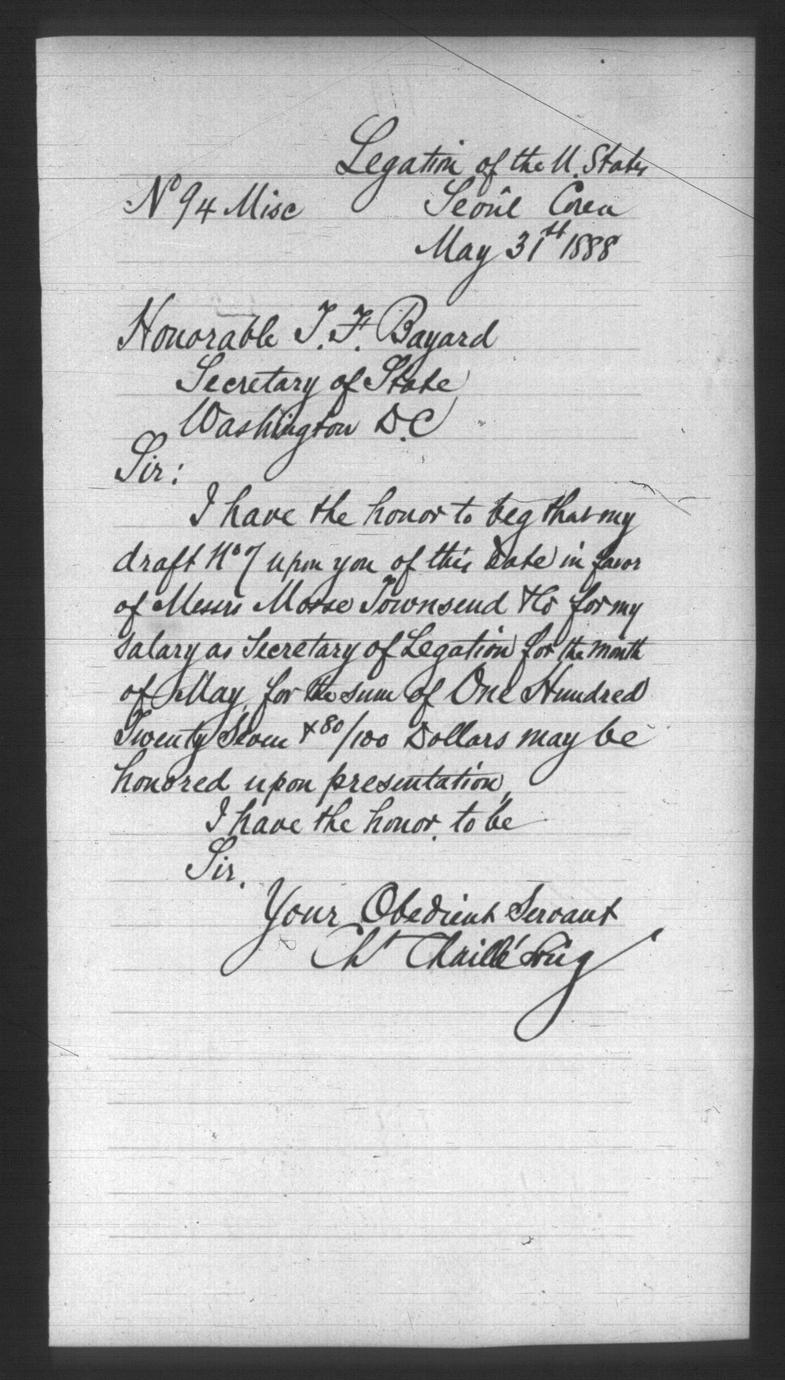 Legation of the U. States
Nº 94 Misc Seoul Corea
May 31st 1888
Honorable T. F. Bayard
Secretary of State
Washington D.C
Sir:
I have the honor to beg that my
draft Nº 7 upon you of this date in favor
of Messrs Morse Townsend & Co for my
salary as Secretary of Legation for the month
of May, for the sum of One Hundred
Twenty Seven & 80/100 Dollars may be
honored upon presentation,
I have the honor to be
Sir.
Your Obedient Servant
Chs Chaillé Long